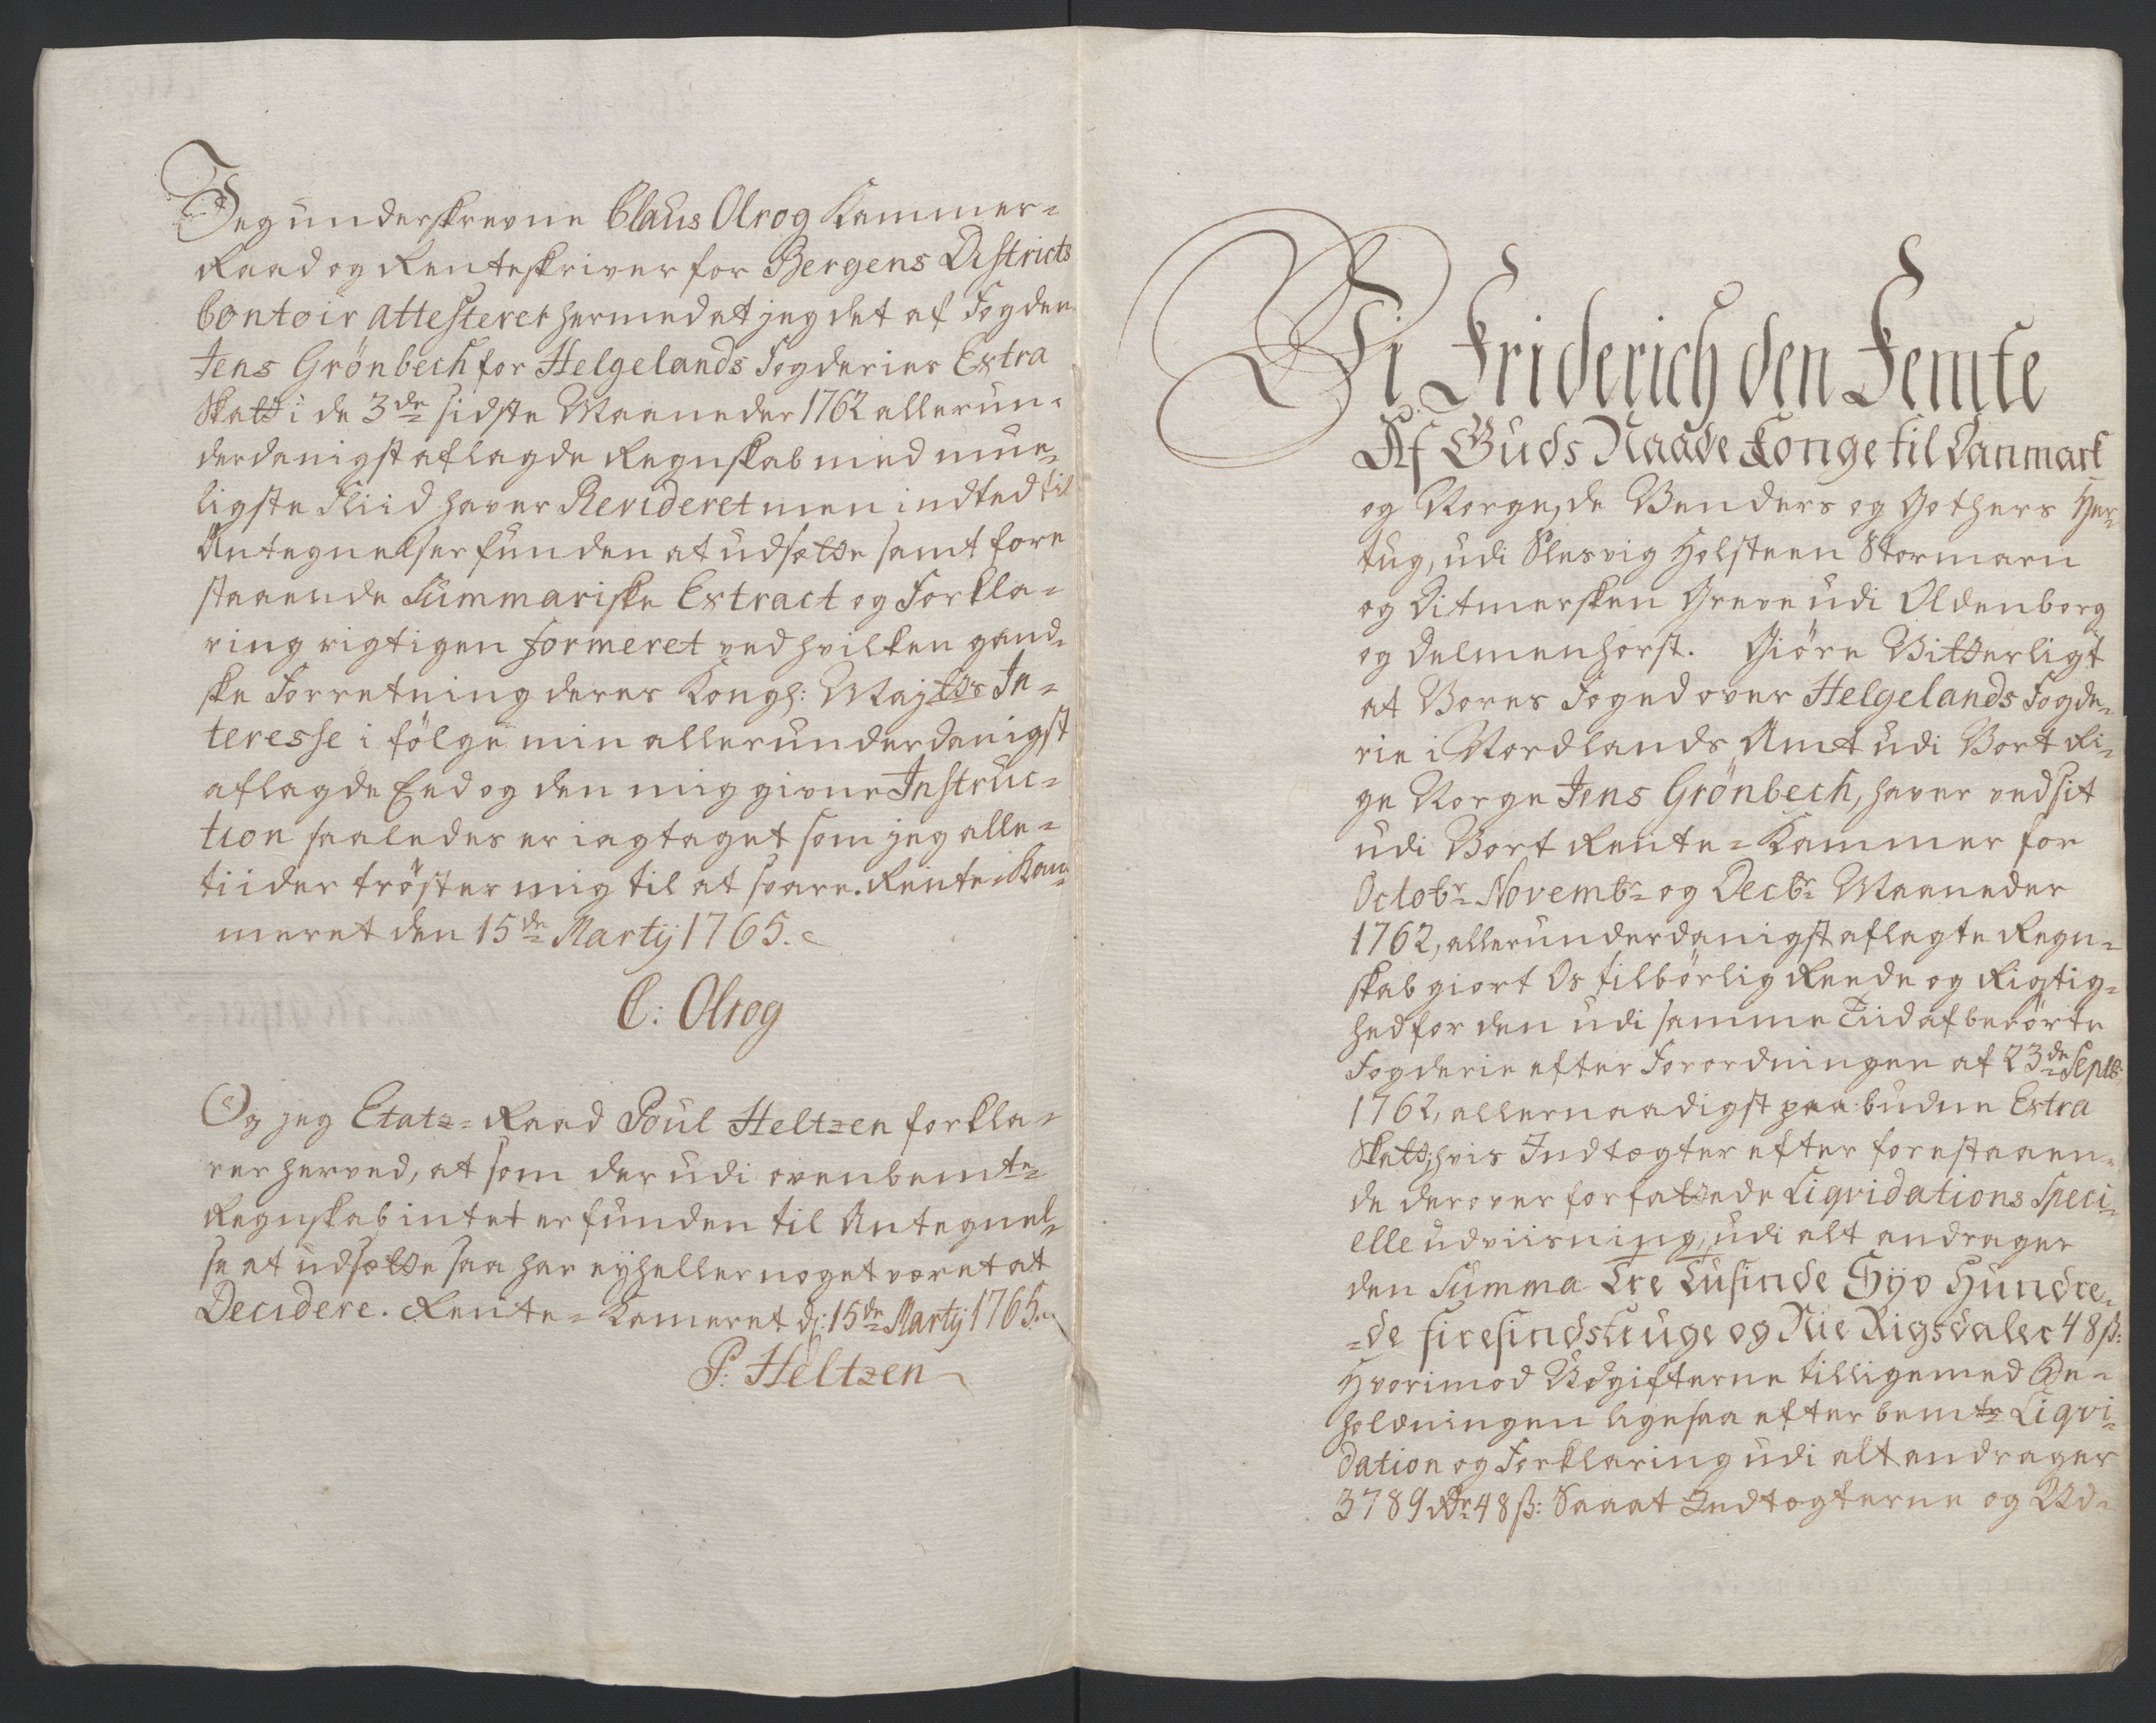 Jeg underskrevne Claus Olrog Kammer-
Raad og Renteskriver for Bergens Districts
Contoir attesterer hermed at jeg det af Fogden
Jens Grönbech for Helgelands Fogderies Extra
Skatt i de 3de sidste Maaneder 1762 allerun-
derdanigst aflagde Regnskab med mue-
ligste Fliid haver Revideret men indted til
Antegnelser funden at udsætte samt fore
staaende Summariske Extract og Forkla-
ring rigtigen formeret ved hvilken gand-
ske Forretning deres Kongl: Majtts In-
teresse i fölge min allerunderdanigst
aflagde Eed og den mig givne Instruc-
tion saaledes er iagtaget som jeg alle-
tiider tröster mig til at svare. Rente-Kam-
meret den 15de Martij 1765.
C: Olrog
Og jeg Etatz-Raad Poul Heltzen forkla-
rer herved, at som der udi ovenbemte
Regnskab intet er funden til Antegnel-
se at udsætte saa har ey heller noget været at
Decidere. Rente-Kameret d: 15de Martij 1765.
P: Heltzen
Vi Friderich den Femte
Af Guds Naade Konge til Danmark
og Norge, de Venders og Gothers Her-
tug, udi Slesvig Holsteen Stormarn
og Ditmersken Greve udi Oldenborg
og Delmenhorst. Giöre Vitterligt
at Vores Foged over Helgelands Fogde-
rie i Nordlands Amt udi Vort Ri-
ge Norge Jens Grönbech, haver ved sit
udi Vort Rente-Kammer for
Octobr Novembr og Decbr Maaneder
1762, allerunderdanigst aflagte Regn-
skab giort Os tilbörlig Reede og Rigtig-
hed for den udi samme Tiid af berörte
Fogderie efter Forordningen af 23de Septb:
1762, allernaadigst paabudne Extra
Skatt, hvis Indtægter efter forestaaen-
de derover forfattede Liqvidations Speci-
elle udviisning, udi alt andrager
den Summa Tre Tusinde Syv Hundre-
-de firesindstiuge og Nie Rigsdaler 48 ß:
Hvorimod Udgifterne tilligemed Be-
holdningen ligesaa efter bemte Liqvi-
dation og Forklaring udi alt andrager
3789 Rdr 48 ß: Saa at Indtægterne og Ud-